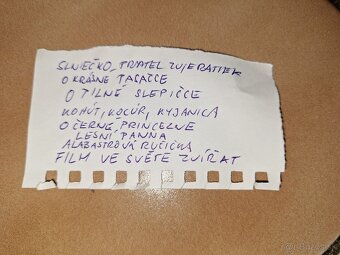 SLNIEČKO, PRIATEL ZVIERATIEK
O KRÁSNE TACAČCE
O PILNÉ SLEPIČCE
KOHÚT, KOCÚR, KYJANICA
O ČERNÉ PRINCEZNE
LESNÍ PANNA
ALABASTROVÁ RUČIČKA
FILM VE SVĚTE ZVÍŘAT